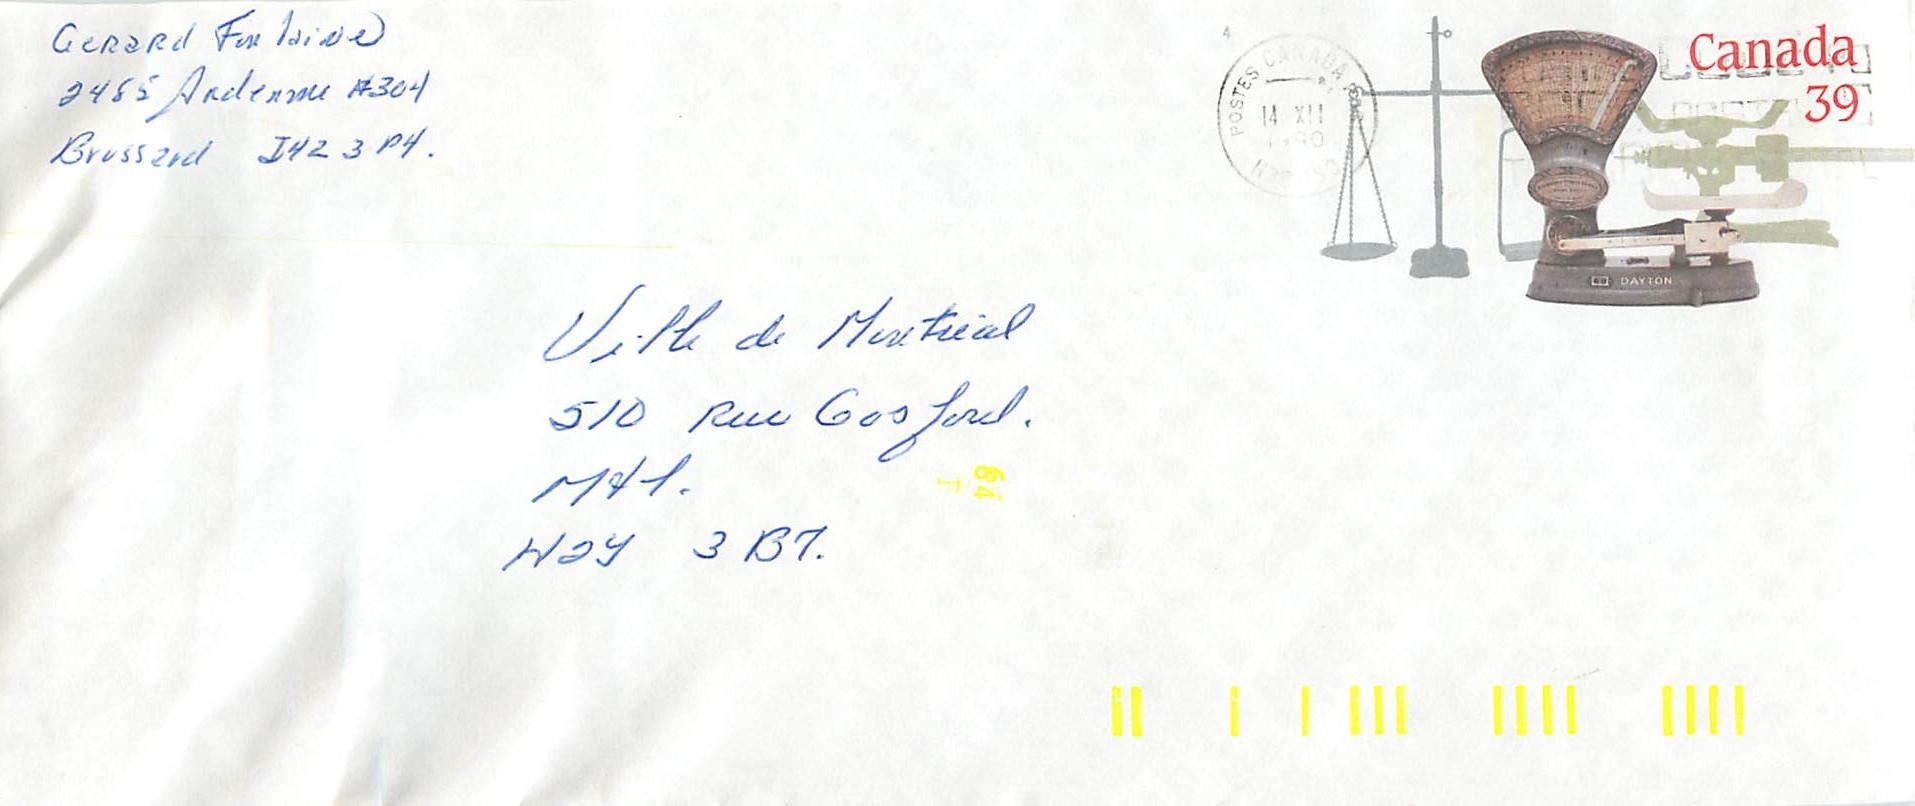 Gerard Fontaine
2465 Ardenne #304
Brossard J4Z 3P4.
4
POSTES CANADA POST
14 XII
1990
H3C 1S0
Canada
39
DAYTON
Ville de Montréal
510 Rue Gosford.
Mtl.
H2Y 3B7.
64
T